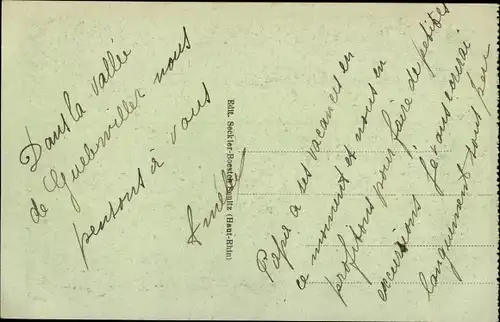 Dans la vallée
de Guebwiller nous
pensons à vous
Edit. Seckler-Roesten Soultz (Haut-Rhin)
Papa a des vacances en
ce moment et nous en
profitons pour faire de petites
excursions je vous écrirai
longuement sous peu